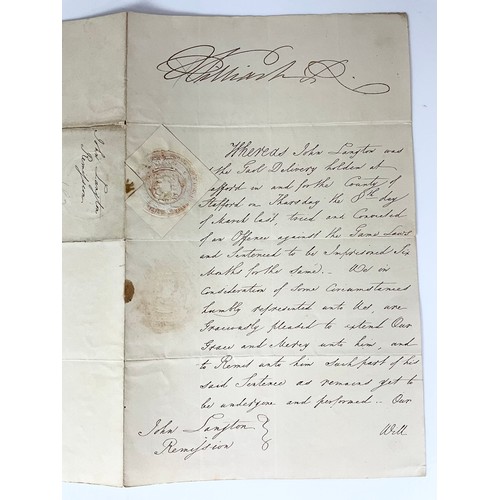 William R.
Whereas John Langton was
at the Gaol Delivery holden at
Stafford in and for the County of
Stafford on Thursday the 8th day
of March last, tried and Convicted
of an Offence against the Game Laws
and Sentenced to be Imprisoned Six
Months for the same.. We in
Consideration of Some Circumstances
humbly represented unto Us, are
Graciously pleased to extend Our
Grace and Mercy unto him, and
to Remit unto him such part of his
said Sentence as remains yet to
be undergone and performed.. Our
Will
John Langton
Remission
John Langton
Remission